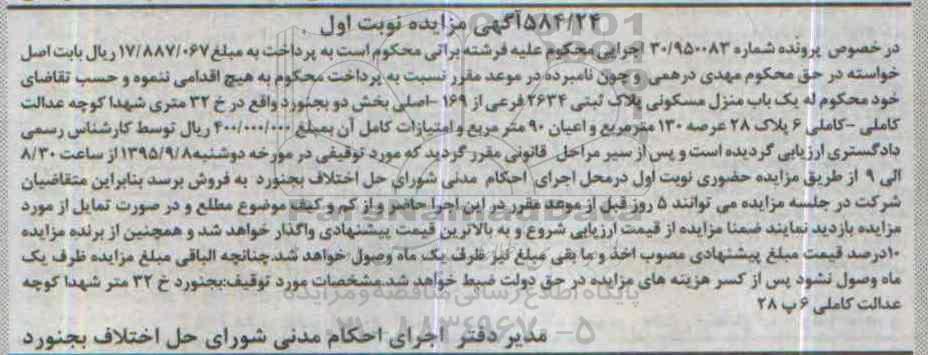 ۵۸۴/۲۴آگهی مزایده نوبت اول
در خصوص پرونده شماره ۳۰/۹۵۰۰۸۳ اجرایی محکوم علیه فرشته براتی محکوم است به پرداخت به مبلغ ۱۷/۸۸۷/۰۶۷ ریال بابت اصل
خواسته در حق محکوم مهدی درهمی و چون نامبرده در موعد مقرر نسبت به پرداخت محکوم به هیچ اقدامی ننموه و حسب تقاضای
خود محکوم له یک باب منزل مسکونی پلاک ثبتی ۲۶۳۴ فرعی از ۱۶۹ -اصلی بخش دو بجنورد واقع در خ ۳۲ متری شهدا کوچه عدالت
کاملی -کاملی ۶ پلاک ۲۸ عرصه ۱۳۰ مترمربع و اعیان ۹۰ متر مربع و امتیازات کامل آن بمبلغ ۴۰۰/۰۰۰/۰۰۰ ریال توسط کارشناس رسمی
دادگستری ارزیابی گردیده است و پس از سیر مراحل قانونی مقرر گردید که مورد توقیفی در مورخه دوشنبه۱۳۹۵/۹/۸ از ساعت ۸/۳۰
الی ۹ از طریق مزایده حضوری نوبت اول درمحل اجرای احکام مدنی شورای حل اختلاف بجنورد به فروش برسد بنابراین متقاضیان
شرکت در جلسه مزایده می توانند ۵ روز قبل از موعد مقرر در این اجرا حاضر و از کم و کیف موضوع مطلع و در صورت تمایل از مورد
مزایده بازدید نمایند ضمنا مزایده از قیمت ارزیابی شروع و به بالاترین قیمت پیشنهادی واگذار خواهد شد و همچنین از برنده مزایده
۱۰درصد قیمت مبلغ پیشنهادی مصوب اخذ و ما بقی مبلغ نیز ظرف یک ماه وصول خواهد شد.چنانچه الباقی مبلغ مزایده ظرف یک
ماه وصول نشود پس از کسر هزینه های مزایده در حق دولت ضبط خواهد شد.مشخصات مورد توقیف:بجنورد خ ۳۲ متر شهدا کوچه
عدالت کاملی ۶ پ ۲۸
مدیر دفتر اجرای احکام مدنی شورای حل اختلاف بجنورد
پایگاه اطلاع رسانی مناقصه و مزایده